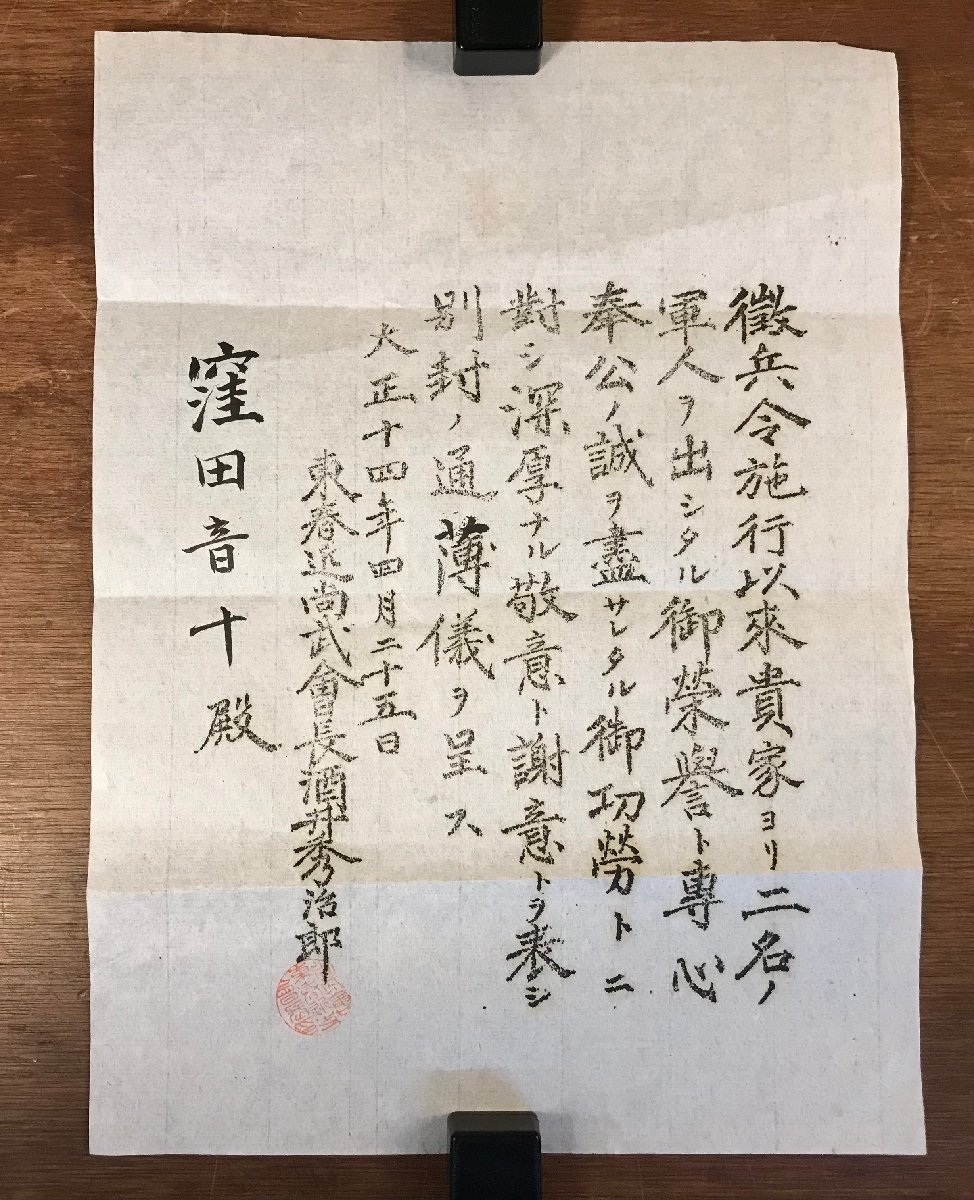 徵兵令施行以來貴家ヨリ二名ノ
軍人ヲ出シタル御榮譽ト專心
奉公ノ誠ヲ盡サレタル御功勞トニ
對シ深厚ナル敬意ト謝意トヲ表シ
別封ノ通薄儀ヲ呈ス
大正十四年四月二十五日
東春近尚武會長酒井秀治郎
窪田音十殿